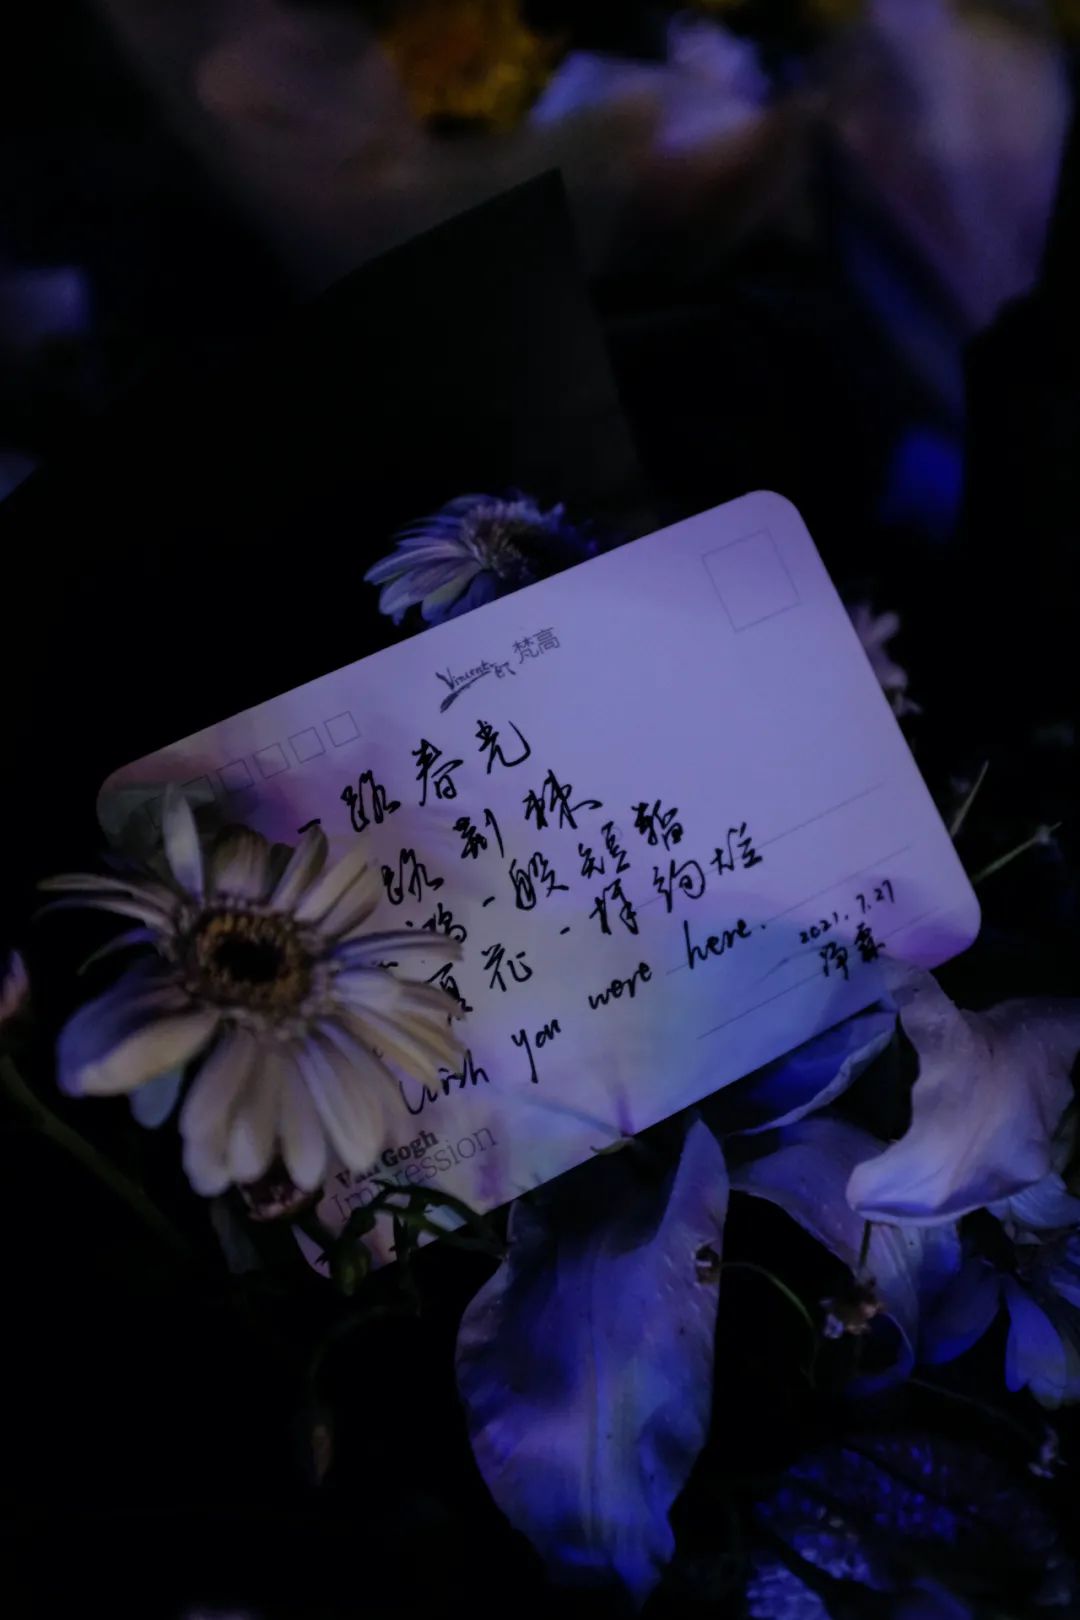 Vincent 的 梵高
一路春光
路荆棘
鸿一般短暂
夏花一样绚烂
Wish you were here.
2021.7.27
泽霖
Van Gogh
Impression